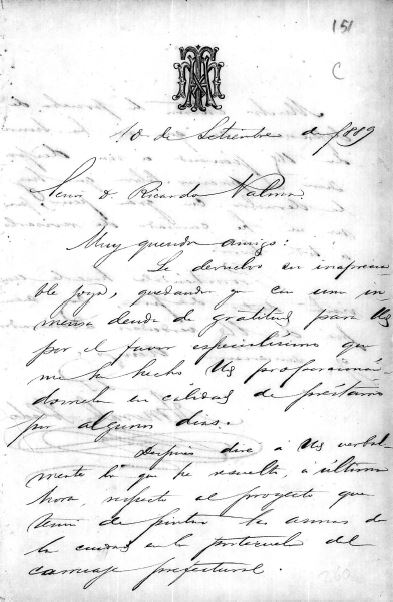 151
C
10 de Setiembre de 1889
Señor D. Ricardo Palma.
Muy querido amigo:
Le devuelvo su inaprecia-
ble joya, quedando yo con una in-
mensa deuda de gratitud para Ud
por el favor especialísimo que
me ha hecho Ud proporcionán-
domela en calidad de préstamo
por algunos dias.
Despues diré á Ud verbal-
mente lo que he resuelto, á última
hora, respecto al proyecto que
tenia de pintar las armas de
la ciudad en la portezuela del
carruaje prefectural.
260